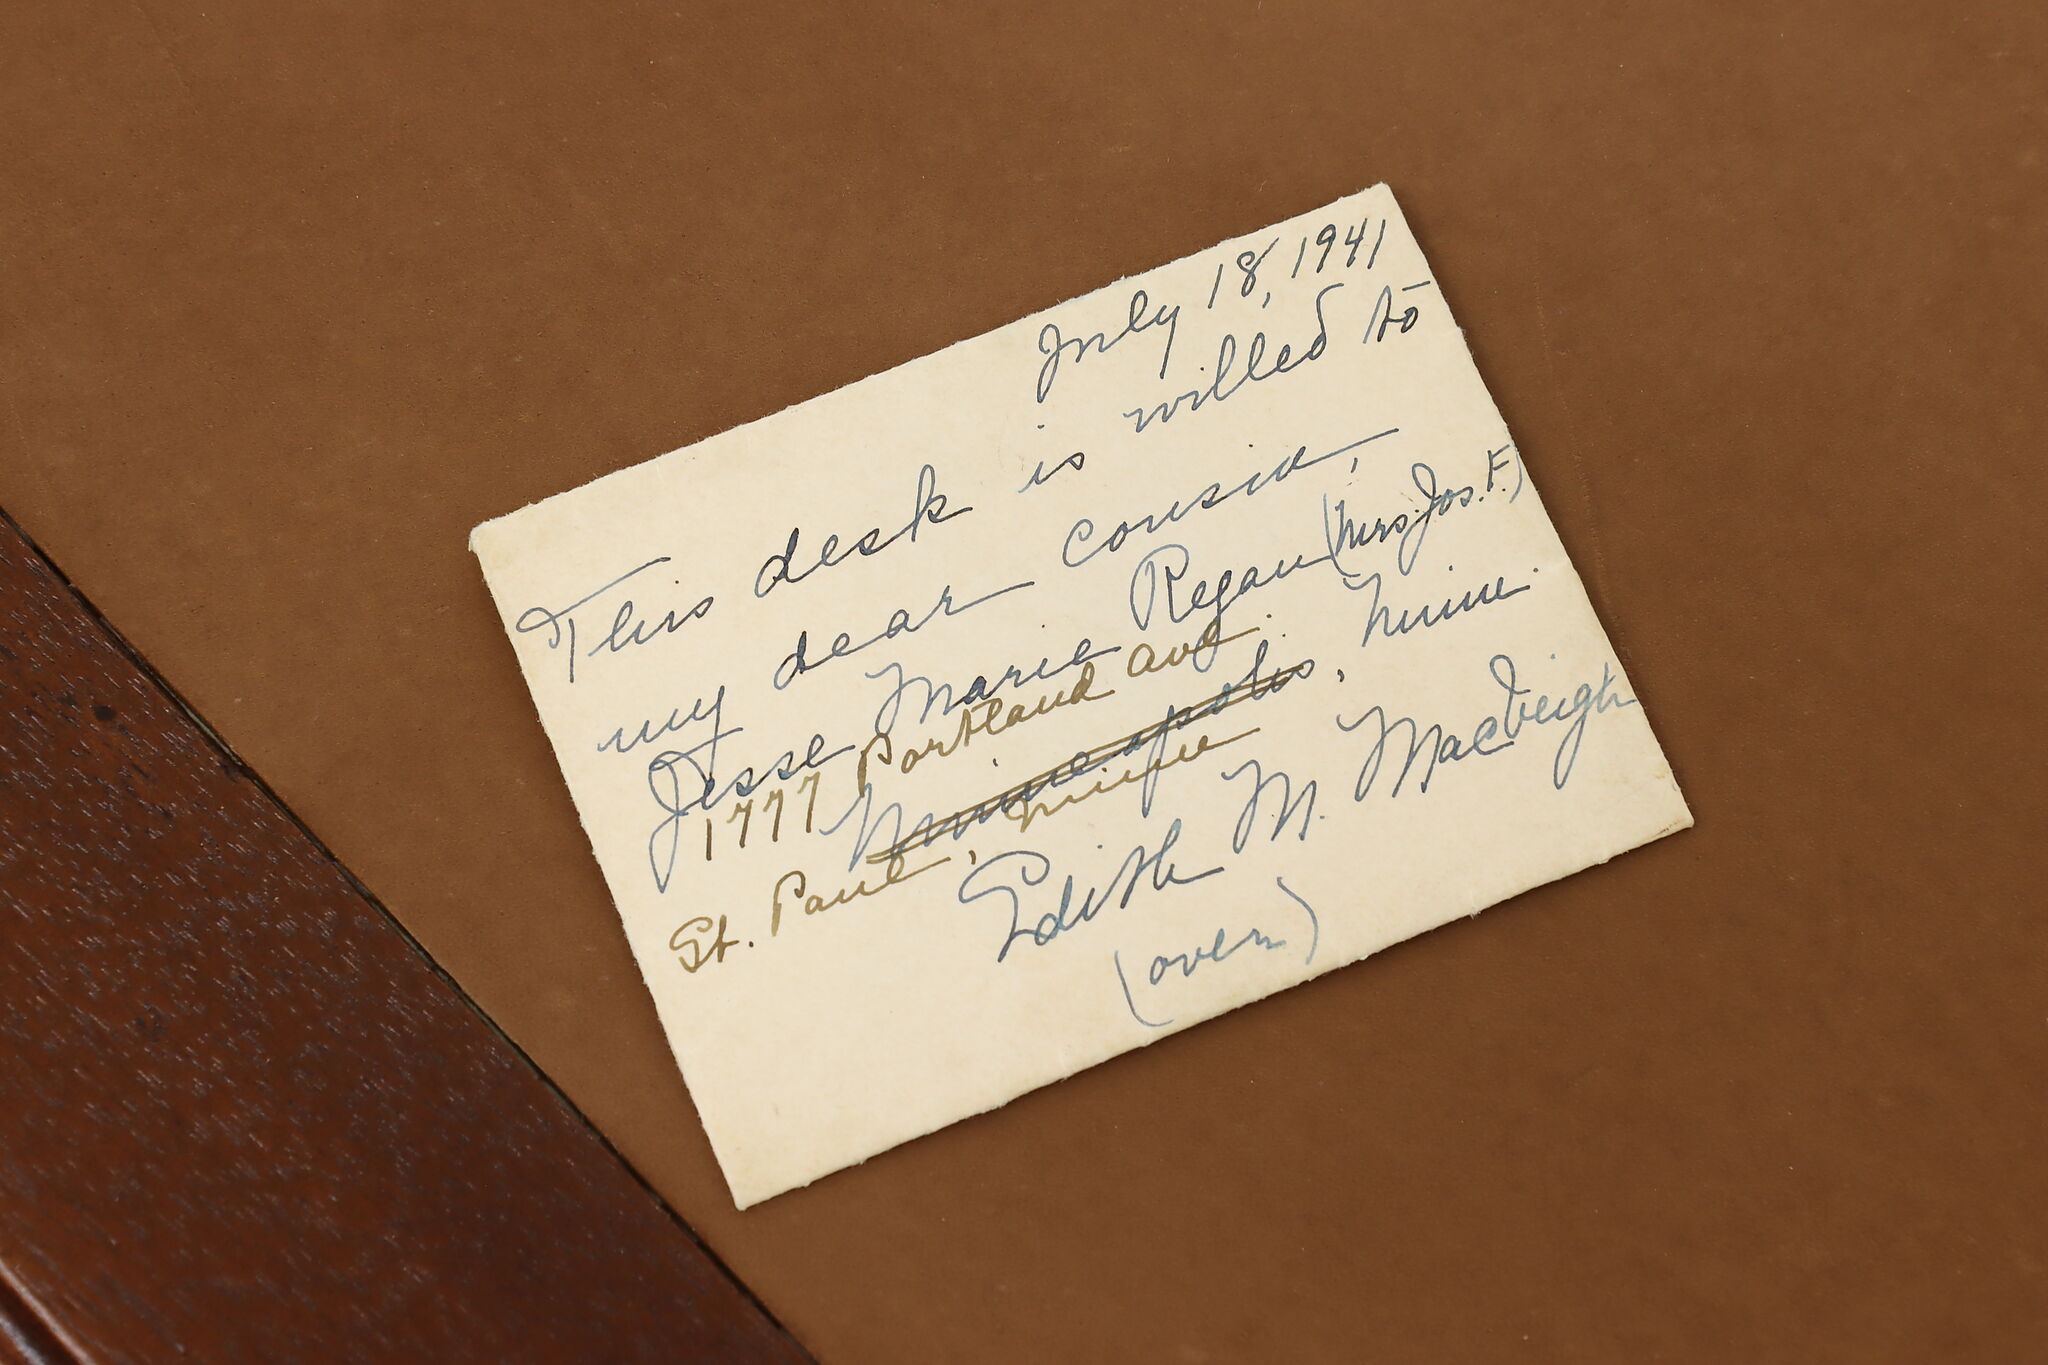 July 18, 1941
This desk is willed to
my dear cousin,
Jesse Marie Regan (Mrs. Jos. F.)
1777 Portland Ave.
Minneapolis, Minn.
St. Paul, Minn
Edith M. MacVeigh
(over)